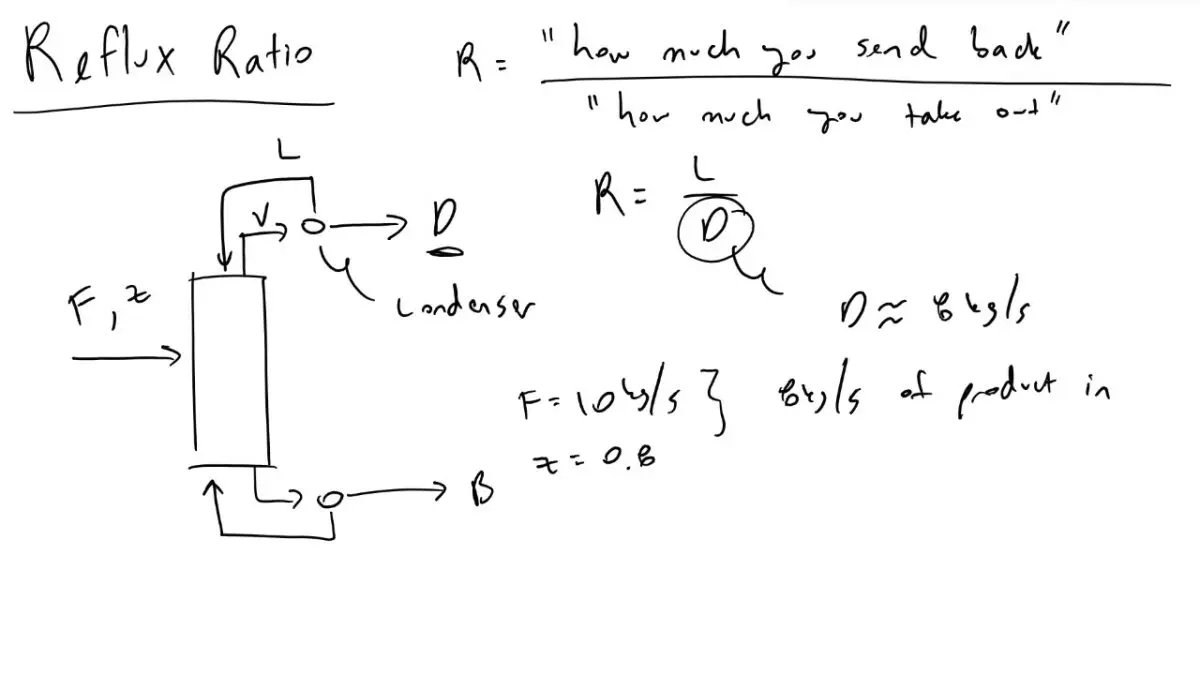 Reflux Ratio
R = "how much you send back"
"how much you take out"
L
R = L
D
V
D
F, z
Condenser
D ≈ 8 kg/s
F = 10 kg/s } 8 kg/s of product in
z = 0.8
B